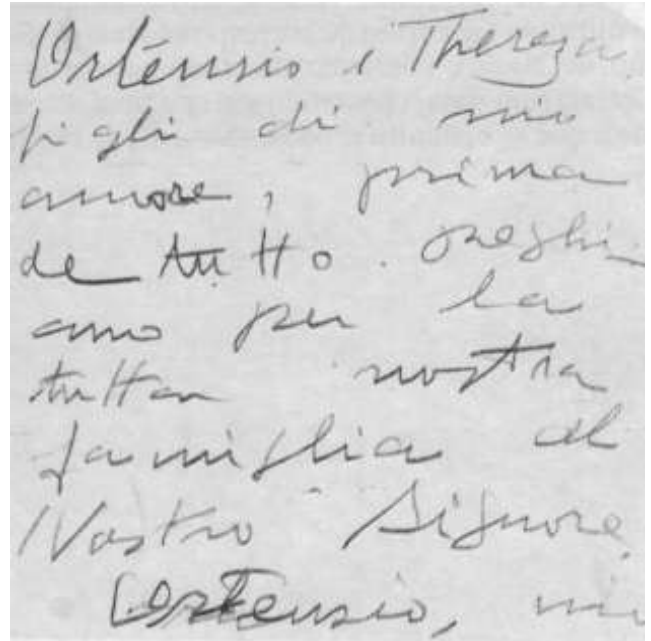 Ortensio i Thereza
figli di mio
amore, prima
de tutto. preghi
amo per la
tutta nostra
famiglia al
Nostro Signore.
Ortensio, mi